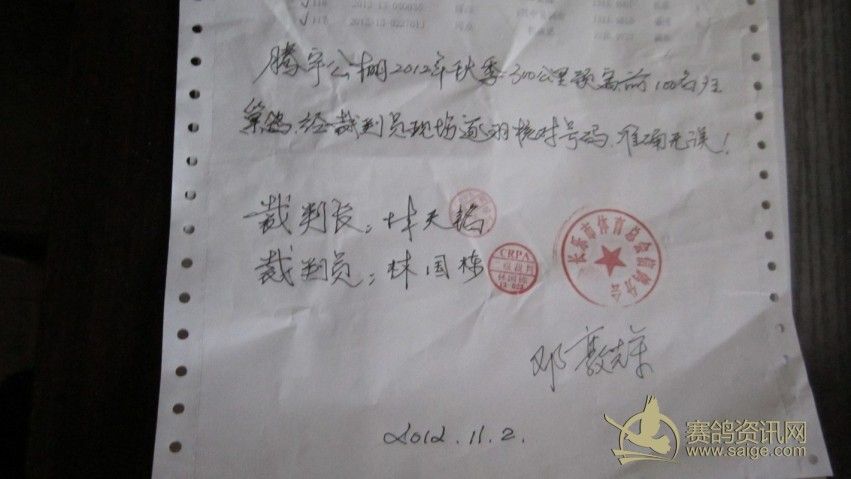 √116 2012-13-090030
√117 2012-13-0227011
腾宇公棚2012年秋季300公里预赛前100名归
巢鸽，经裁判员现场逐羽核对号码，准确无误！
裁判长：林天铭
裁判员：林国栋
CRPA
长乐市体育总会信鸽分会
邓
2012.11.2.
赛鸽资讯网
www.saige.com